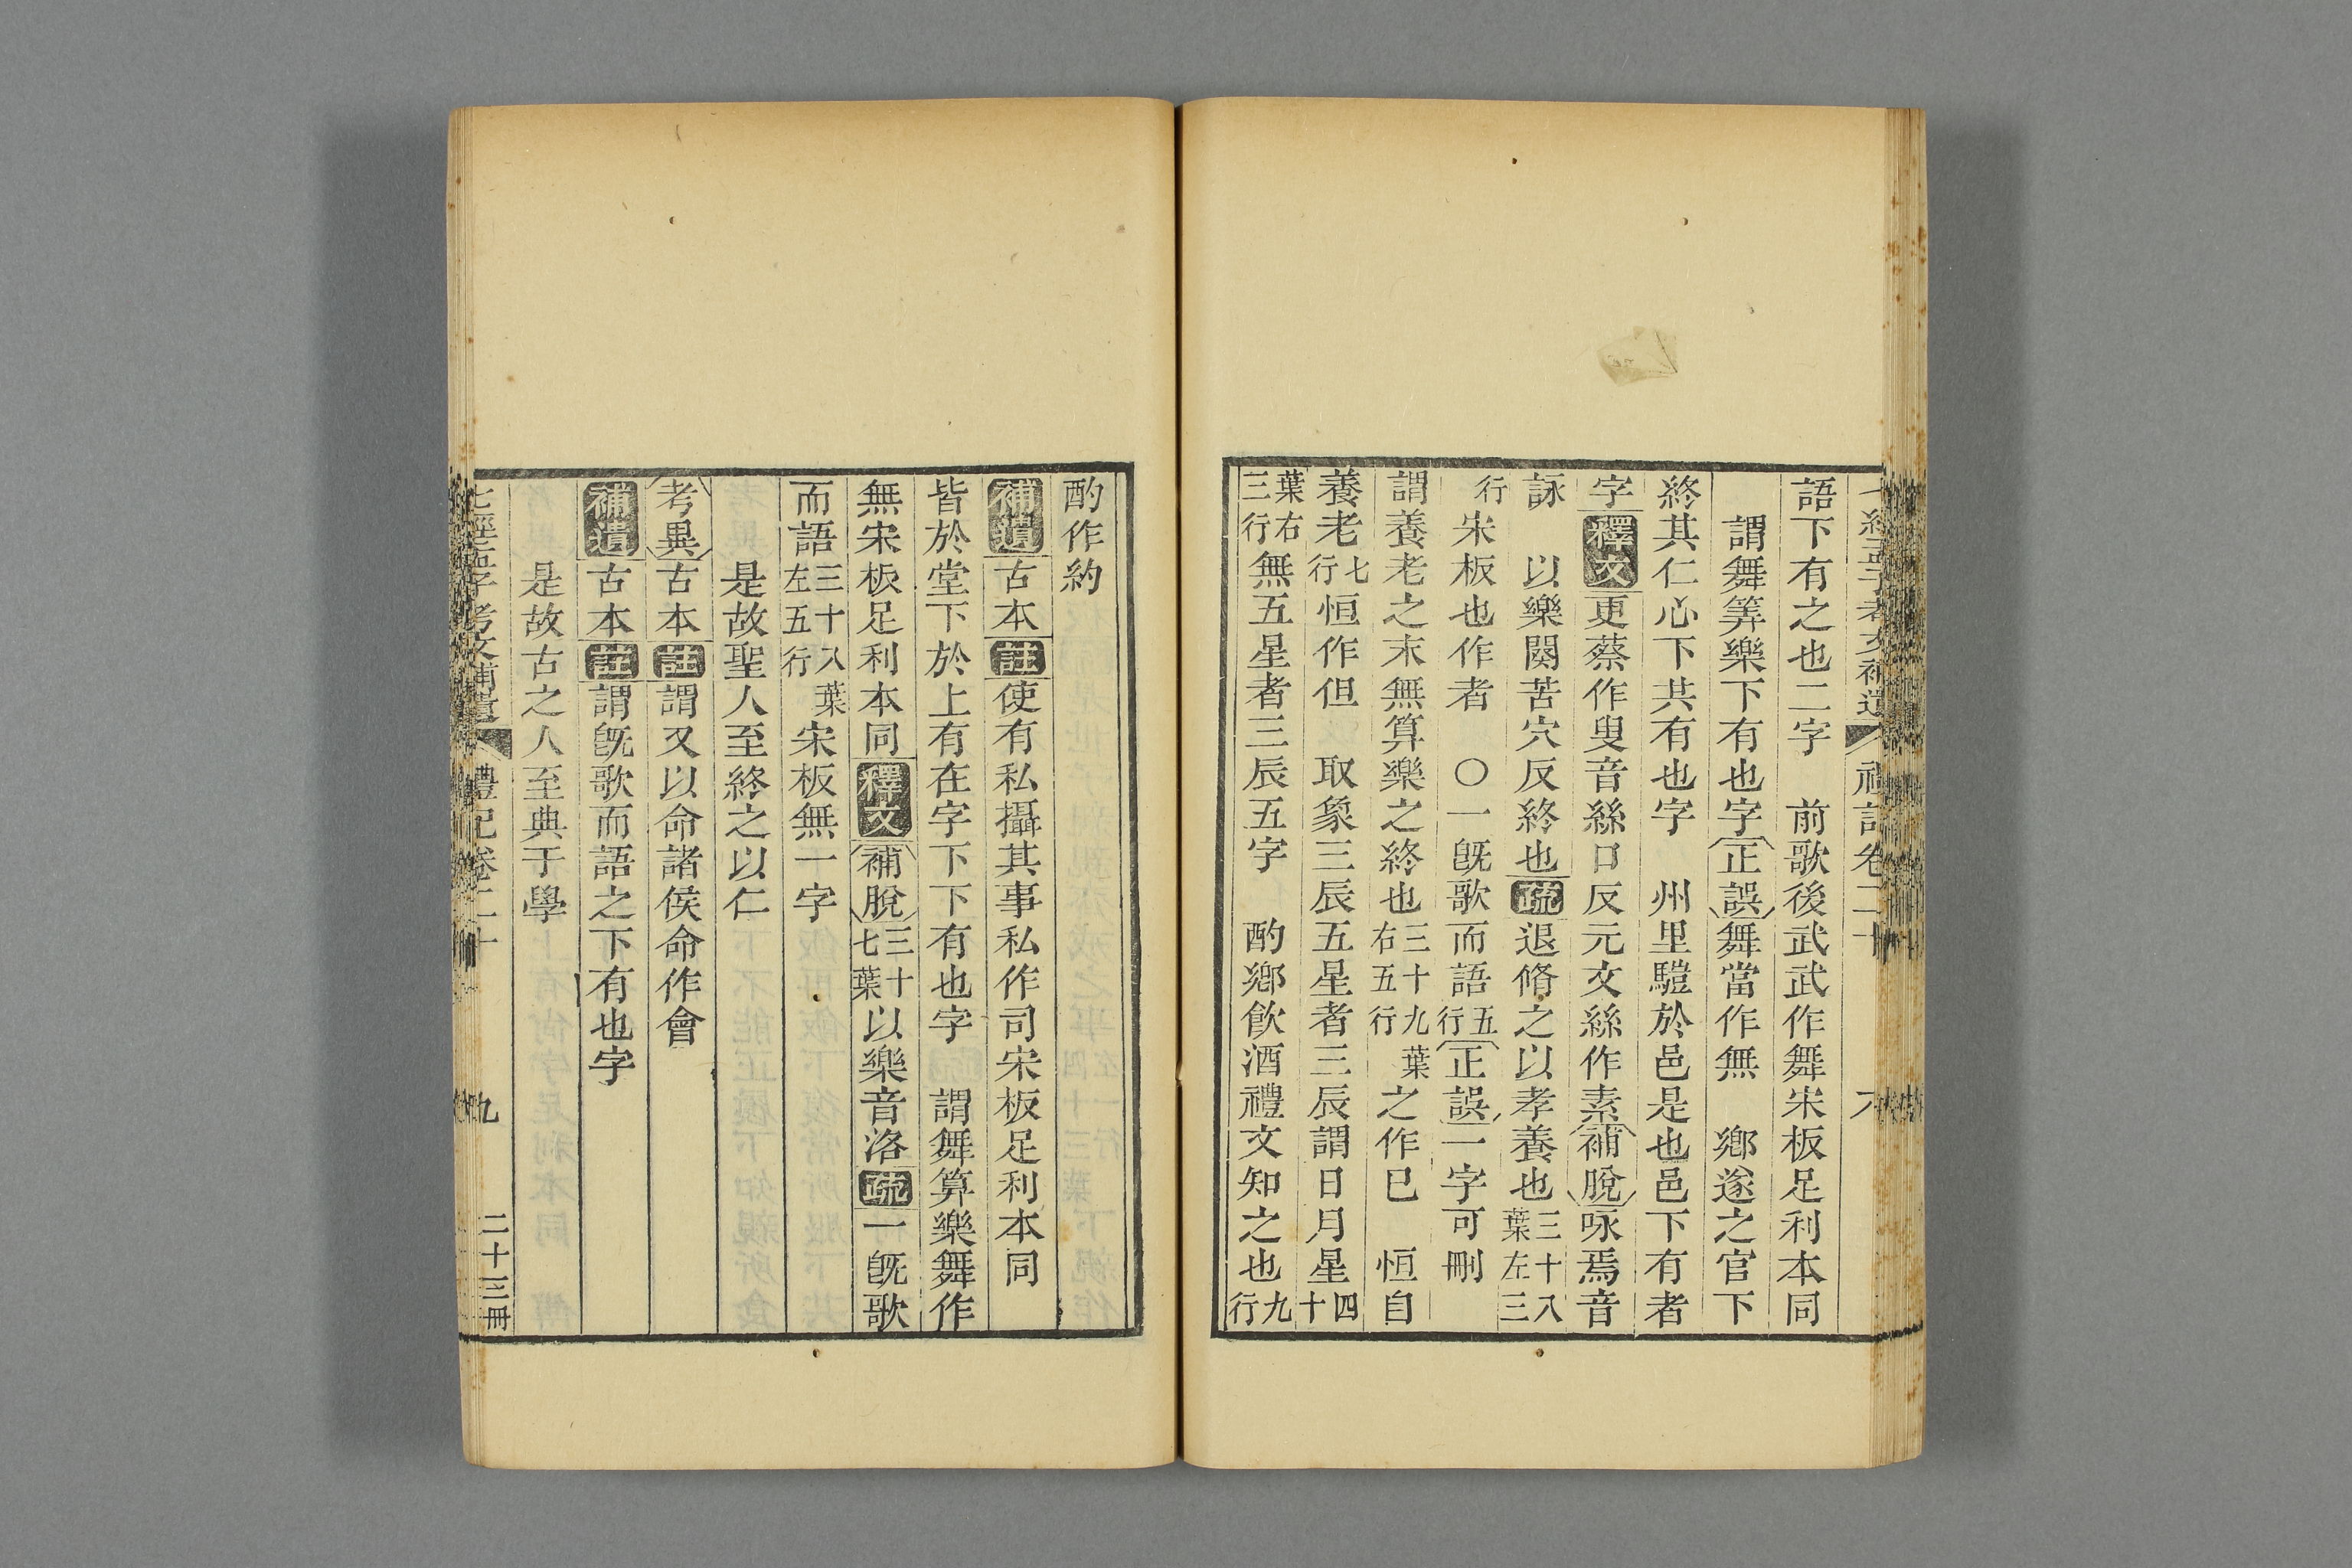 語下有之也二字　前歌後武武作舞宋板足利本同
謂舞筭樂下有也字正誤舞當作無　鄉遂之官下
終其仁心下共有也字　州里驩於邑是也邑下有者
字釋文更蔡作叟音絲口反元文絲作素補脫咏焉音
詠　以樂闋苦穴反終也疏退脩之以孝養也三十八葉左三
行宋板也作者　〇一旣歌而語五行正誤一字可刪
謂養老之末無算樂之終也三十九葉右五行之作巳　恒自
養老七行恒作但　取象三辰五星者三辰謂日月星四十
葉右三行無五星者三辰五字　酌鄉飮酒禮文知之也九行
酌作約
補遺古本註使有私攝其事私作司宋板足利本同
皆於堂下於上有在字下下有也字　謂舞算樂舞作
無宋板足利本同釋文補脫三十七葉以樂音洛疏一旣歌
而語三十八葉左五行宋板無一字
是故聖人至終之以仁
考異古本註謂又以命諸侯命作會
補遺古本註謂旣歌而語之下有也字
是故古之人至典于學
七經孟子考文補遺　禮記卷二十　九　二十三冊